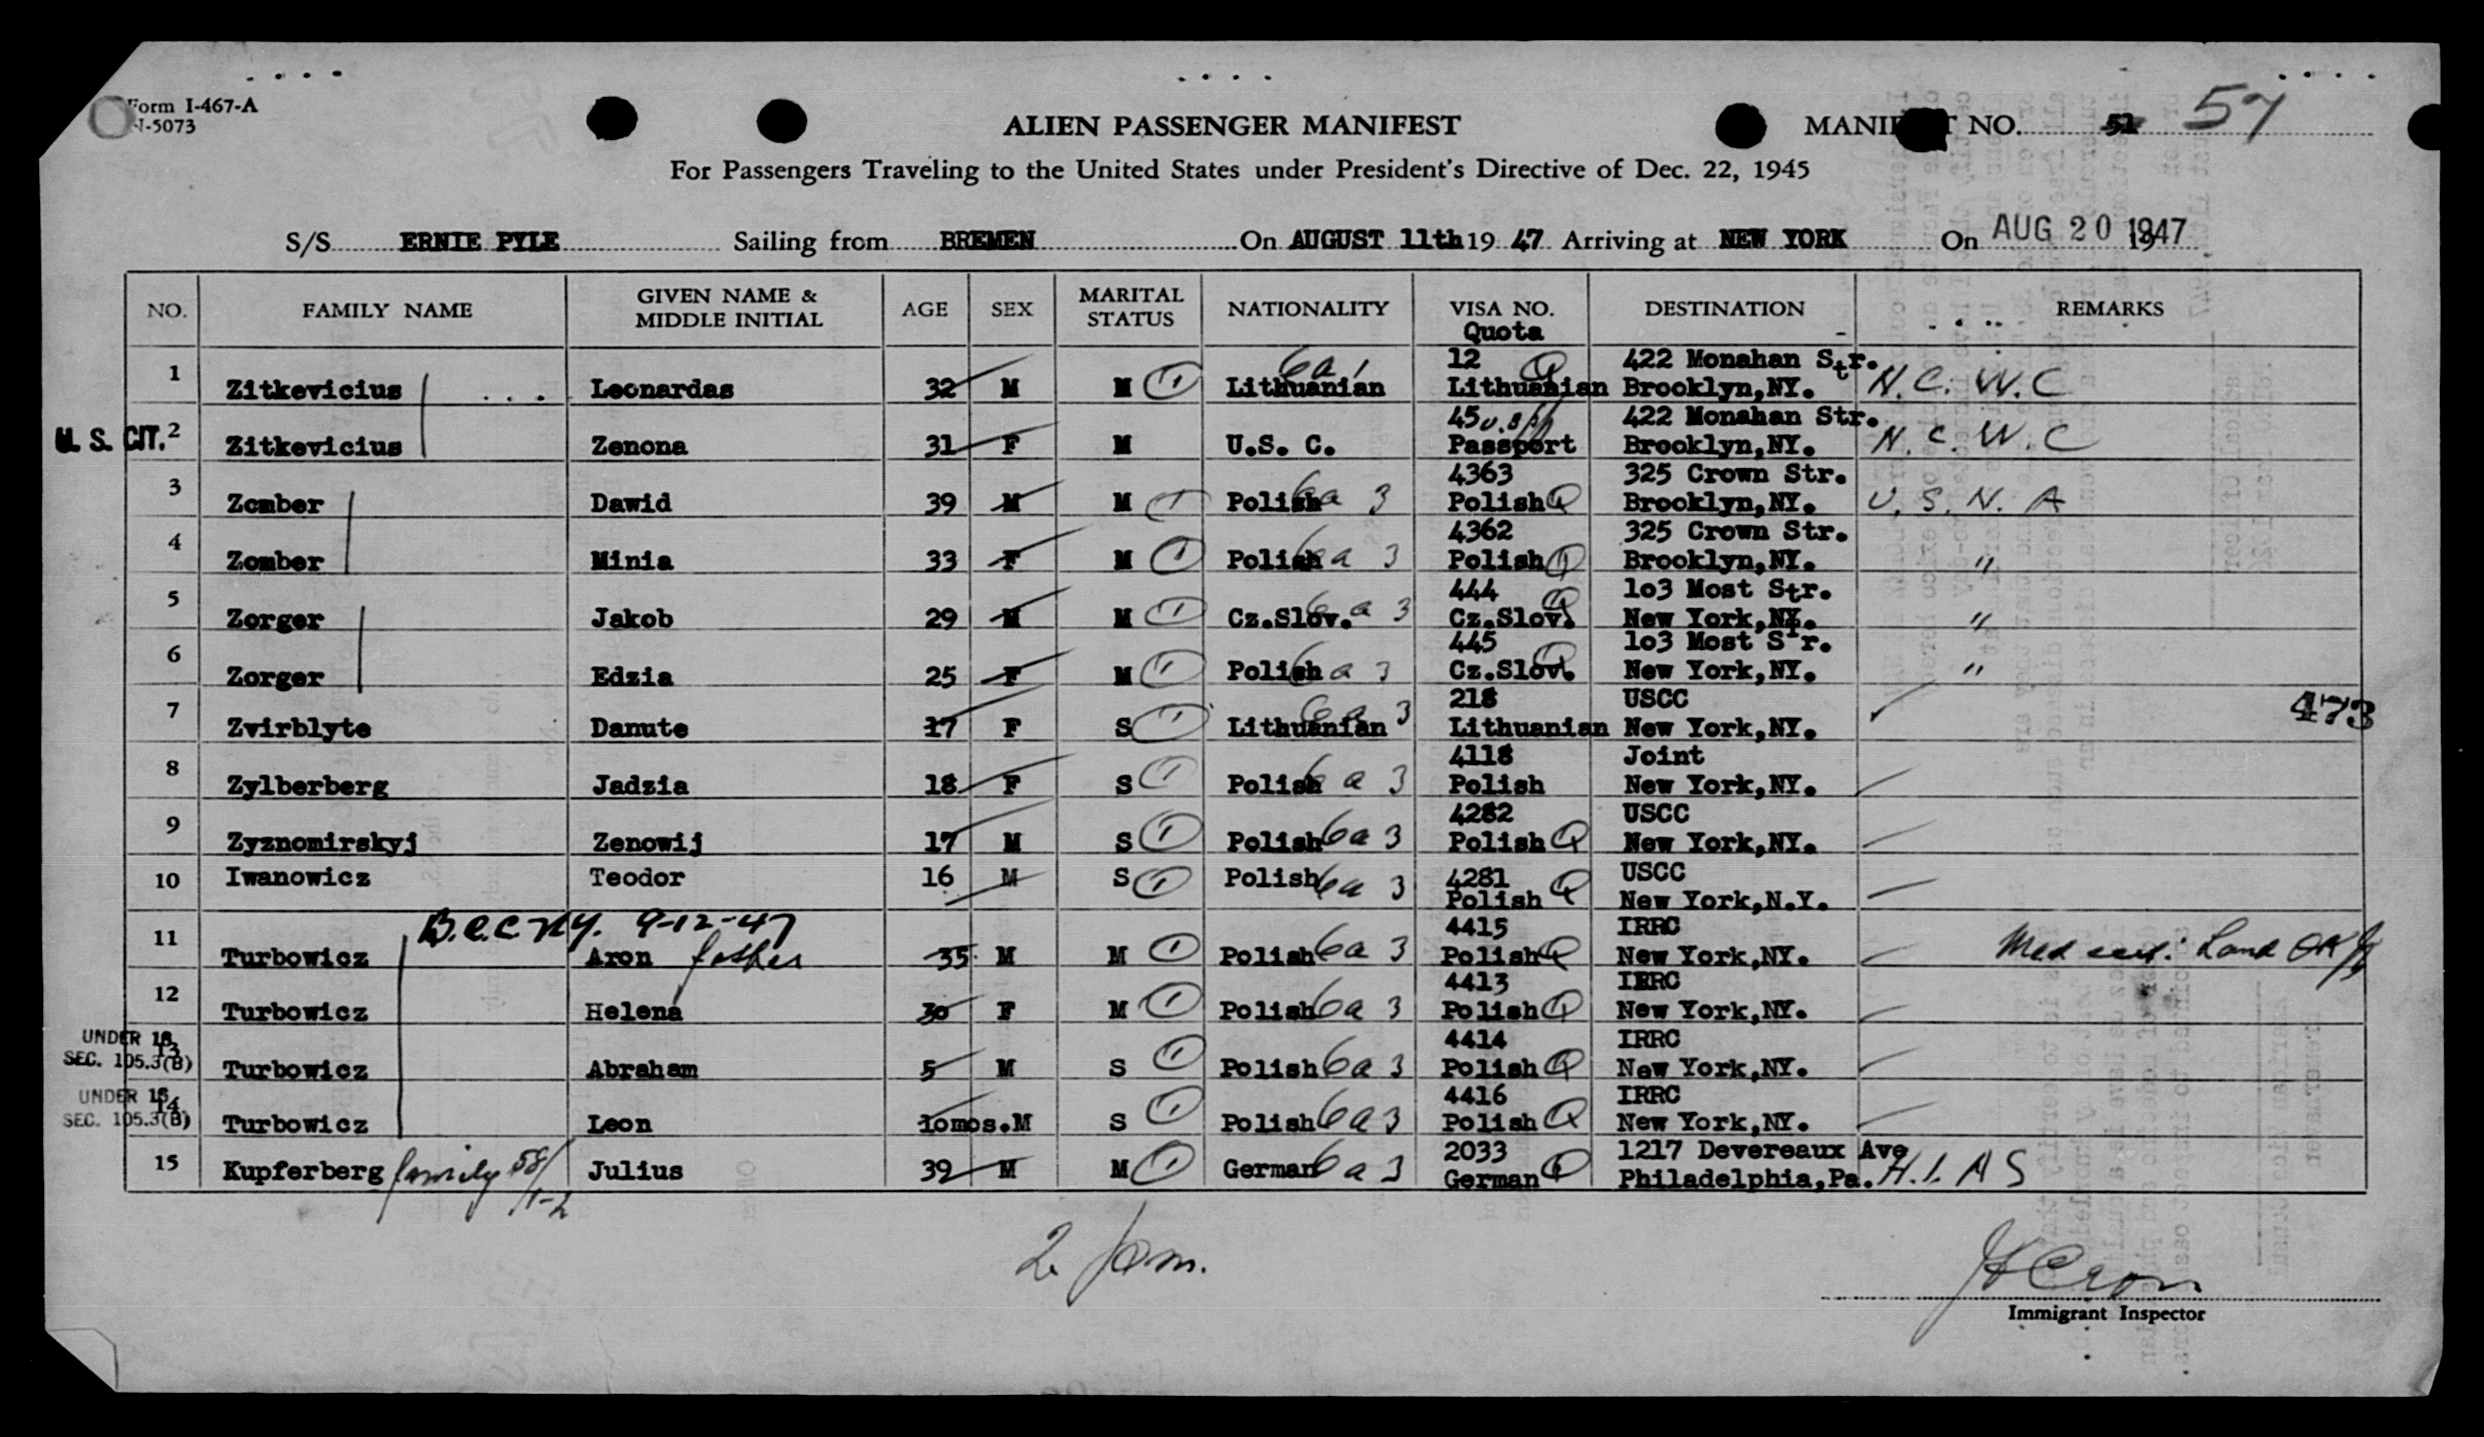 Form I-467-A
N-5073
ALIEN PASSENGER MANIFEST
MANIFEST NO. 51 57
For Passengers Traveling to the United States under President's Directive of Dec. 22, 1945
S/S ERNIE PYLE Sailing from BREMEN On AUGUST 11th 19 47 Arriving at NEW YORK On AUG 20 1947
NO. FAMILY NAME GIVEN NAME & MIDDLE INITIAL AGE SEX MARITAL STATUS NATIONALITY VISA NO. Quota DESTINATION REMARKS
12 422 Monahan Str.
1 Zitkevicius Leonardas 32 M M Lithuanian 6a1 Lithuanian Q Brooklyn,NY. N.C.W.C
45 422 Monahan Str.
U. S. CIT. 2 Zitkevicius Zenona 31 F M U.S. C. Passport Brooklyn,NY. N.C.W.C
4363 325 Crown Str.
3 Zomber Dawid 39 M M Polish 6a 3 Polish Q Brooklyn,NY. U.S.N.A
4362 325 Crown Str.
4 Zomber Minia 33 F M Polish 6a 3 Polish Q Brooklyn,NY. "
444 1o3 Most Str.
5 Zorger Jakob 29 M M Cz.Slov. 6a 3 Cz.Slov. Q New York,NY. "
445 1o3 Most Str.
6 Zorger Edzia 25 F M Polish 6a 3 Cz.Slov. Q New York,NY. "
218 USCC 473
7 Zvirblyte Danute 17 F S Lithuanian 6a 3 Lithuanian New York,NY.
4118 Joint
8 Zylberberg Jadzia 18 F S Polish 6a 3 Polish New York,NY.
4282 USCC
9 Zyznomirskyj Zenowij 17 M S Polish 6a 3 Polish Q New York,NY.
10 Iwanowicz Teodor 16 M S Polish 6a 3 4281 USCC
Polish Q New York,N.Y.
B.C.C. NY. 9-12-47 4415 IRRC
11 Turbowicz Aron father 35 M M Polish 6a 3 Polish Q New York,NY. Med cert. Land OK
4413 IRRC
12 Turbowicz Helena 30 F M Polish 6a 3 Polish Q New York,NY.
UNDER 16 4414 IRRC
SEC. 105.3(B) 13 Turbowicz Abraham 5 M S Polish 6a 3 Polish Q New York,NY.
UNDER 16 4416 IRRC
SEC. 105.3(B) 14 Turbowicz Leon 1omos. M S Polish 6a 3 Polish Q New York,NY.
2033 1217 Devereaux Ave
15 Kupferberg family 58/1-2 Julius 39 M M German 6a 3 German Q Philadelphia,Pa. H.I.A S
2 fam.
Immigrant Inspector